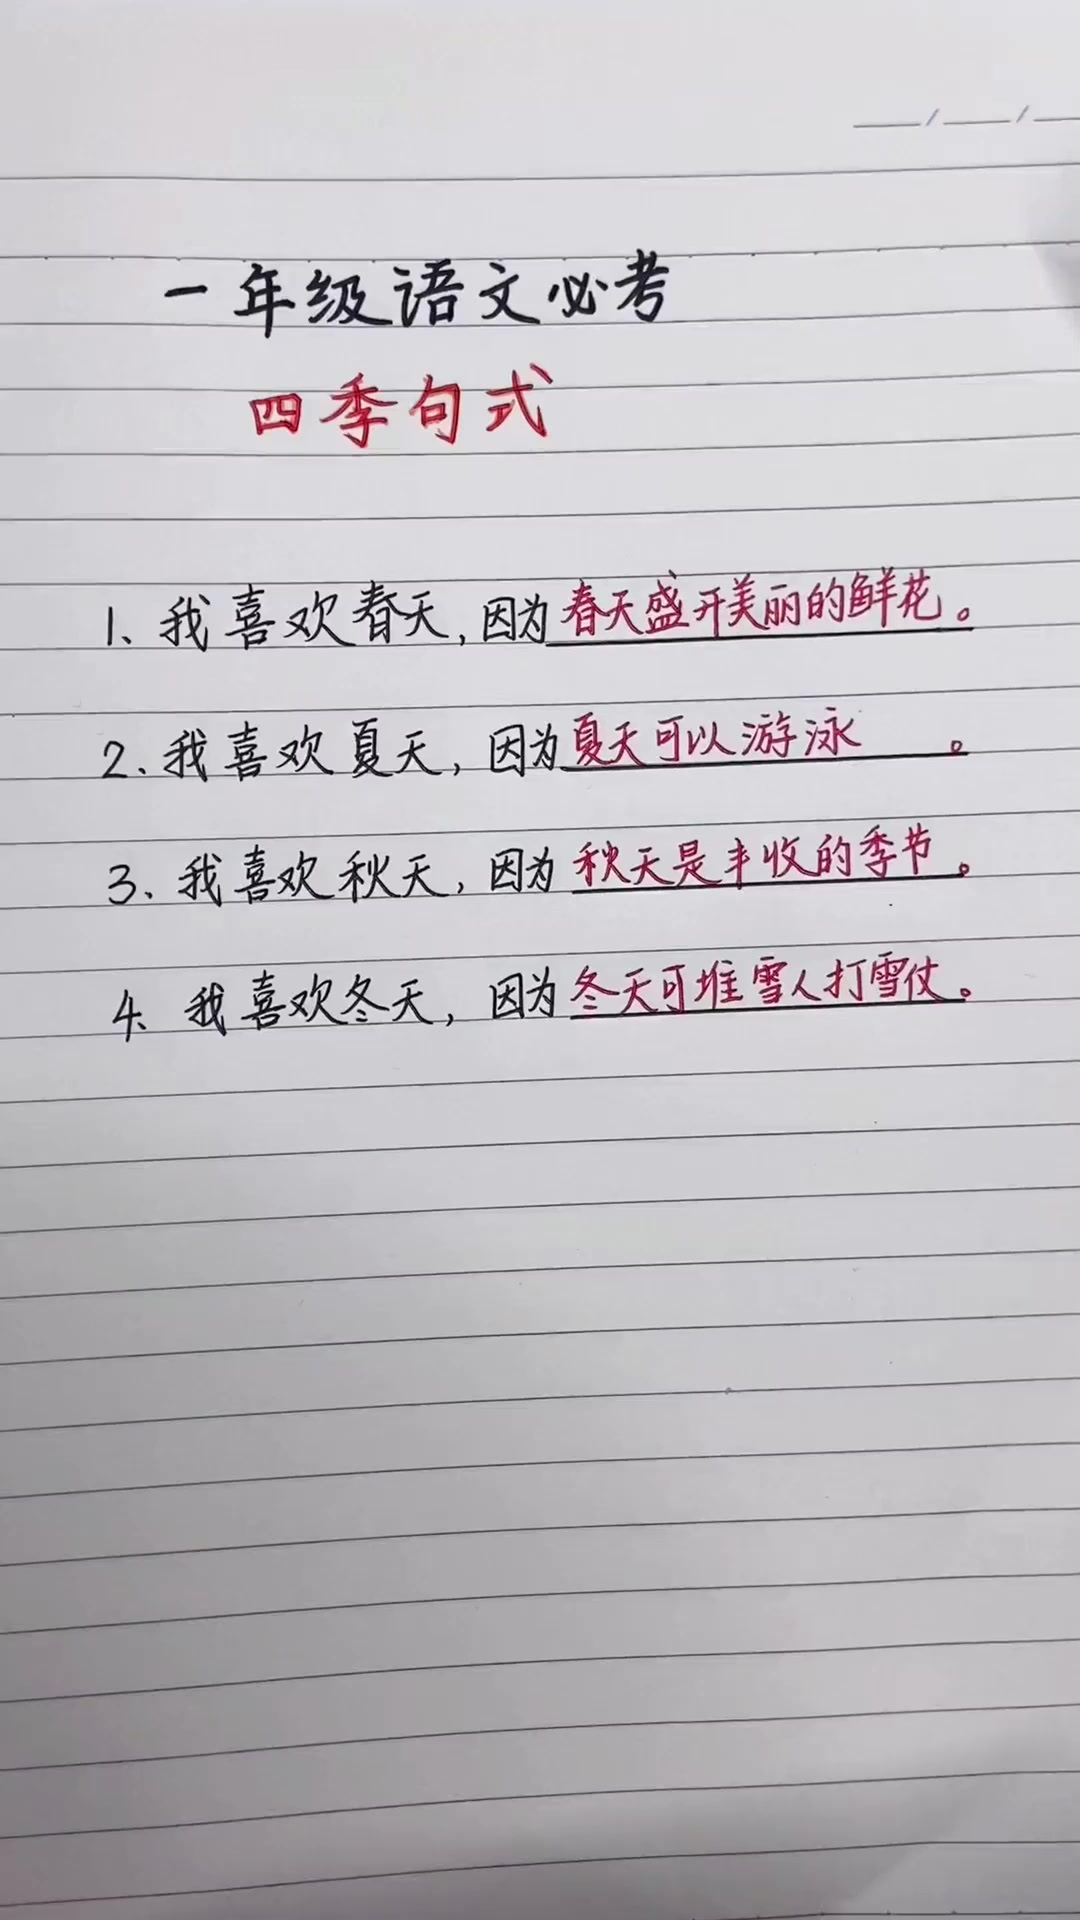 一年级语文必考
四季句式
1、我喜欢春天,因为春天盛开美丽的鲜花。
2、我喜欢夏天,因为夏天可以游泳。
3、我喜欢秋天,因为秋天是丰收的季节。
4、我喜欢冬天,因为冬天可堆雪人打雪仗。